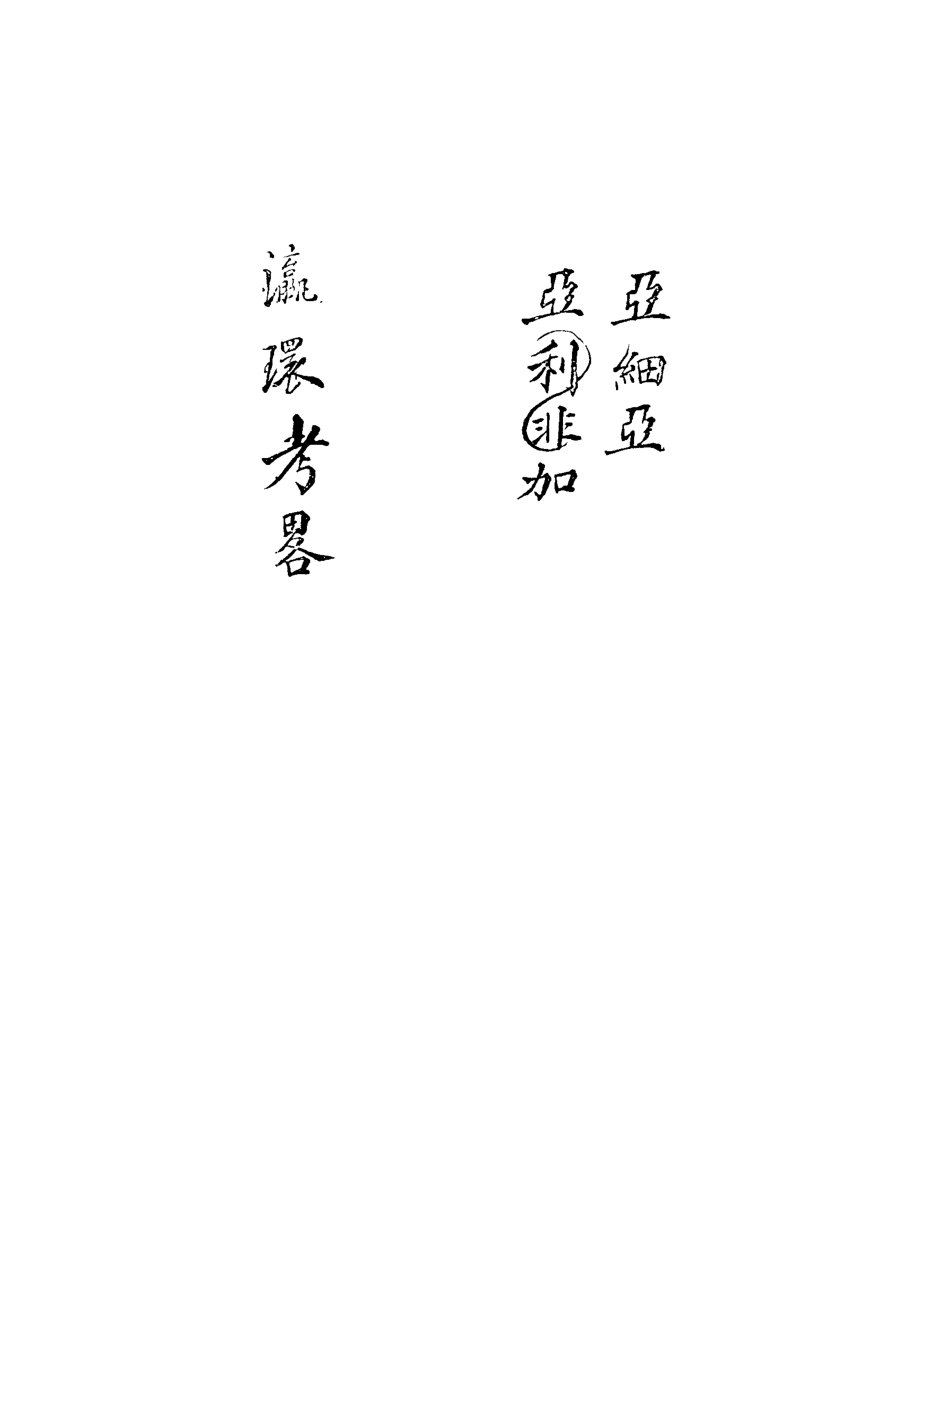 亞細亞
亞利非加
瀛環考畧